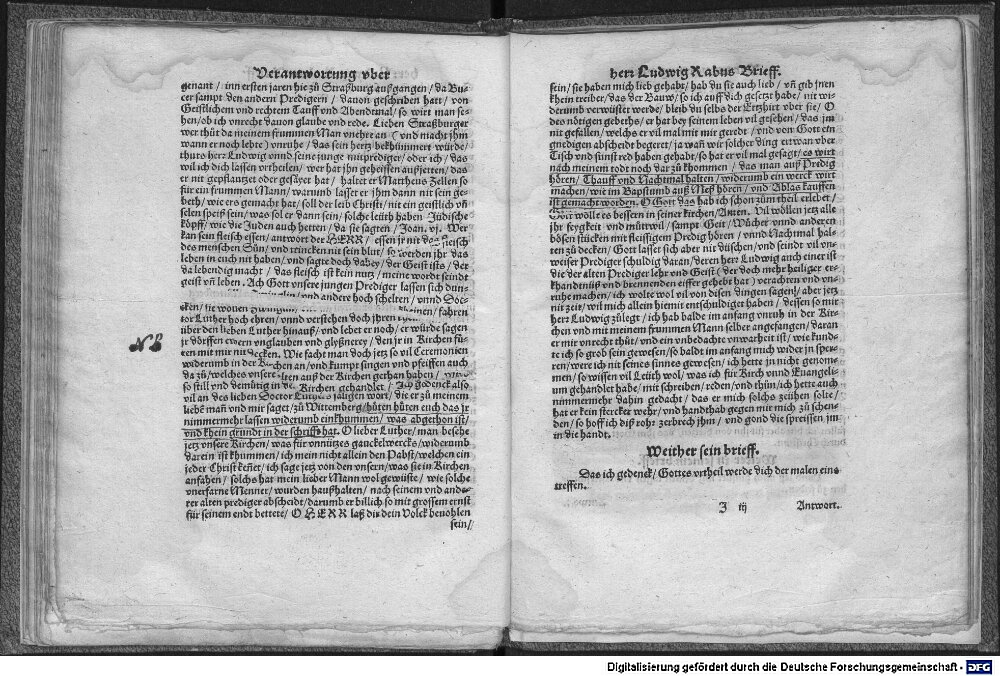 Verantwortung vber
genant / inn ersten jaren hie zu Straßburg außgangen / da Bu-
cer sampt den andern Predigern / danon geschriben hatt / von
Geistlichem vnd rechtem Tauff vnd Abendtmal / so wirt man se-
hen / ob ich vnrecht danon glaube vnd rede. Lieben Straßburger
wer thut da meinem frummen Man vnehre an (vnd macht jhm
wann er noch lebte) vnruhe / das sein hertz bekhümmert würde /
thuts herr Ludwig vnnd seine junge mitprediger / oder ich / das
wil ich dich lassen vrtheilen / wer hat jhn geheissen außjetten / das
er nit gepflantzet oder gesäyet hat / haltet er Mattheus Zellen so
für ein frummen Mann / warumb lasset er jhm dann nit sein ge-
beth / wie ers gemacht hat / soll der leib Christi / nit ein geistlich vñ
selen speiß sein / was sol er dann sein / solche leüth haben Jüdische
köpff / wie die Juden auch hetten / da sie sagten / Joan. vj. Wer
kan sein fleisch essen / antwort der HERR / essen jr nit das fleisch
des menschen Sün / vnd trincken nit sein blut / so werden jhr das
leben in euch nit haben / vnd sagte doch dabey / der Geist ists / der
da lebendig macht / das fleisch ist kein nutz / meine wort seindt
geist vñ leben. Ach Gott vnsere jungen Prediger lassen sich dun-
vnd andere hoch schelten / vnnd Doc-
cken / sie wöllen
fahren
tor Luther hoch ehren / vnnd verstehen doch jhren
über den lieben Luther hinauß / vnd lebet er noch / er würde sagen
jr dörffen ewern vnglauben vnd glyßnerey / den jr in Kirchen fü-
ren mit mir nit decken. Wie facht man doch jetz so vil Ceremonien
widerumb in der Kirchen an / vnd kumpt singen vnd pfeiffen auch
da zu / welches vnsere alten auß der Kirchen gethan haben / vnnd
so still vnd demütig in der Kirchen gehandlet / Ich gedenck also
vil an des lieben Doctor Luthers säligen wort / die er zu meinem
liebē mañ vnd mir saget / zu Wittemberg / hüten hüten euch das jr
nimmermehr lassen widerumb einkhummen / was abgethon ist /
vnd khein grundt in der schrifft hat. O lieber Luther / man besehe
jetz vnsere Kirchen / was für vnnützes ganckelwercks / widerumb
darein ist khummen / ich mein nicht allein den Pabst / welchen ein
jeder Christ keñet / ich sage jetz von den vnsern / was sie in Kirchen
anfahen / solchs hat mein lieber Mann wol gewüste / wie solche
vnerfarne Menner / wurden haußhalten / nach seinem vnd ande-
rer alten prediger abscheidt / darumb er billich so mit grossem ernst
für seinem endt bettete / O HERR laß dir dein Volck beuohlen
sein /
NB
herr Ludwig Rabus Brieff.
sein / sie haben mich lieb gehabt / hab du sie auch lieb / vñ gib jnen
khein treiber / das der Bauw / so ich auff dich gesetzt habe / nit wi-
derumb verwüstet werde / bleib du selbs der Ertzhirt vber sie / O
des nötigen gebeths / er hat bey seinem leben vil gesehen / das jm
nit gefallen / welchs er vil mal mit mir geredt / vnd von Gott ein
gnedigen abscheidt begeert / ja wañ wir solcher ding etwan vber
Tisch vnd sunst red haben gehabt / so hat er vil mal gesagt / es wirt
nach meinem todt noch dar zu khommen / das man auß Predig
hören / Thauff vnd Nachtmal halten / widerumb ein werck wirt
machen / wie im Bapstumb auß Meß hören / vnd Ablas kauffen
ist gemacht worden. O Gott das hab ich schon zum theil erlebet /
Gott wölle es bessern in seiner kirchen / Amen. Vil wöllen jetz alle
jhr feygkeit vnd mütwil / sampt Geit / Wücher vnnd anderen
bösen stücken mit fleissigem Predig hören / vnnd Nachtmal hal-
ten zu decken / Gott lasset sich aber nit düschen / vnd seindt vil vn-
weiser Prediger schuldig daran / deren herr Ludwig auch einer ist
die der alten Prediger lehr vnd Geist (der doch mehr heiliger er-
khandtnüß vnd brennenden eiffer gehebt hat) verachten vnd vn-
ruhe machen / ich wolte wol vil von disen dingen sagen / aber jetz
nit zeit / wil mich allein hiemit entschuldiget haben / dessen so mir
herr Ludwig zülegt / ich hab balde im anfang vnruh in der Kir-
chen vnd mit meinem frummen Mann selber angefangen / daran
er mir vnrecht thüt / vnd ein vnbedachte vnwarheit ist / wie kund-
te ich so grob sein gewesen / so baldt im anfang mich wider jn sper-
ren / were ich nit seines sinnes gewesen / ich hette jn nicht genom-
men / so wissen vil Leüth wol / was ich für Kirch vnnd Euangeli-
um gehandlet habe / mit schreiben / reden / vnd thün / ich hette auch
nimmermehr dahin gedacht / das er mich solchs zeühen solte /
hat er kein stercker wehr / vnd handthab gegen mir mich zu schen-
den / so hoff ich diß rohr zerbrech jhm / vnd gond die spreissen jm
in die handt.
Weither sein brieff.
Das ich gedenck / Gottes vrtheil werde dich der malen eins
treffen.
J iij
Antwort.
Digitalisierung gefördert durch die Deutsche Forschungsgemeinschaft - DFG